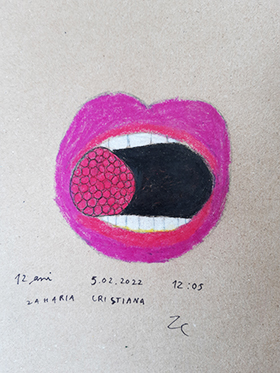 12 ani 5.02.2022 12:05
ZAHARIA CRISTIANA
ZC